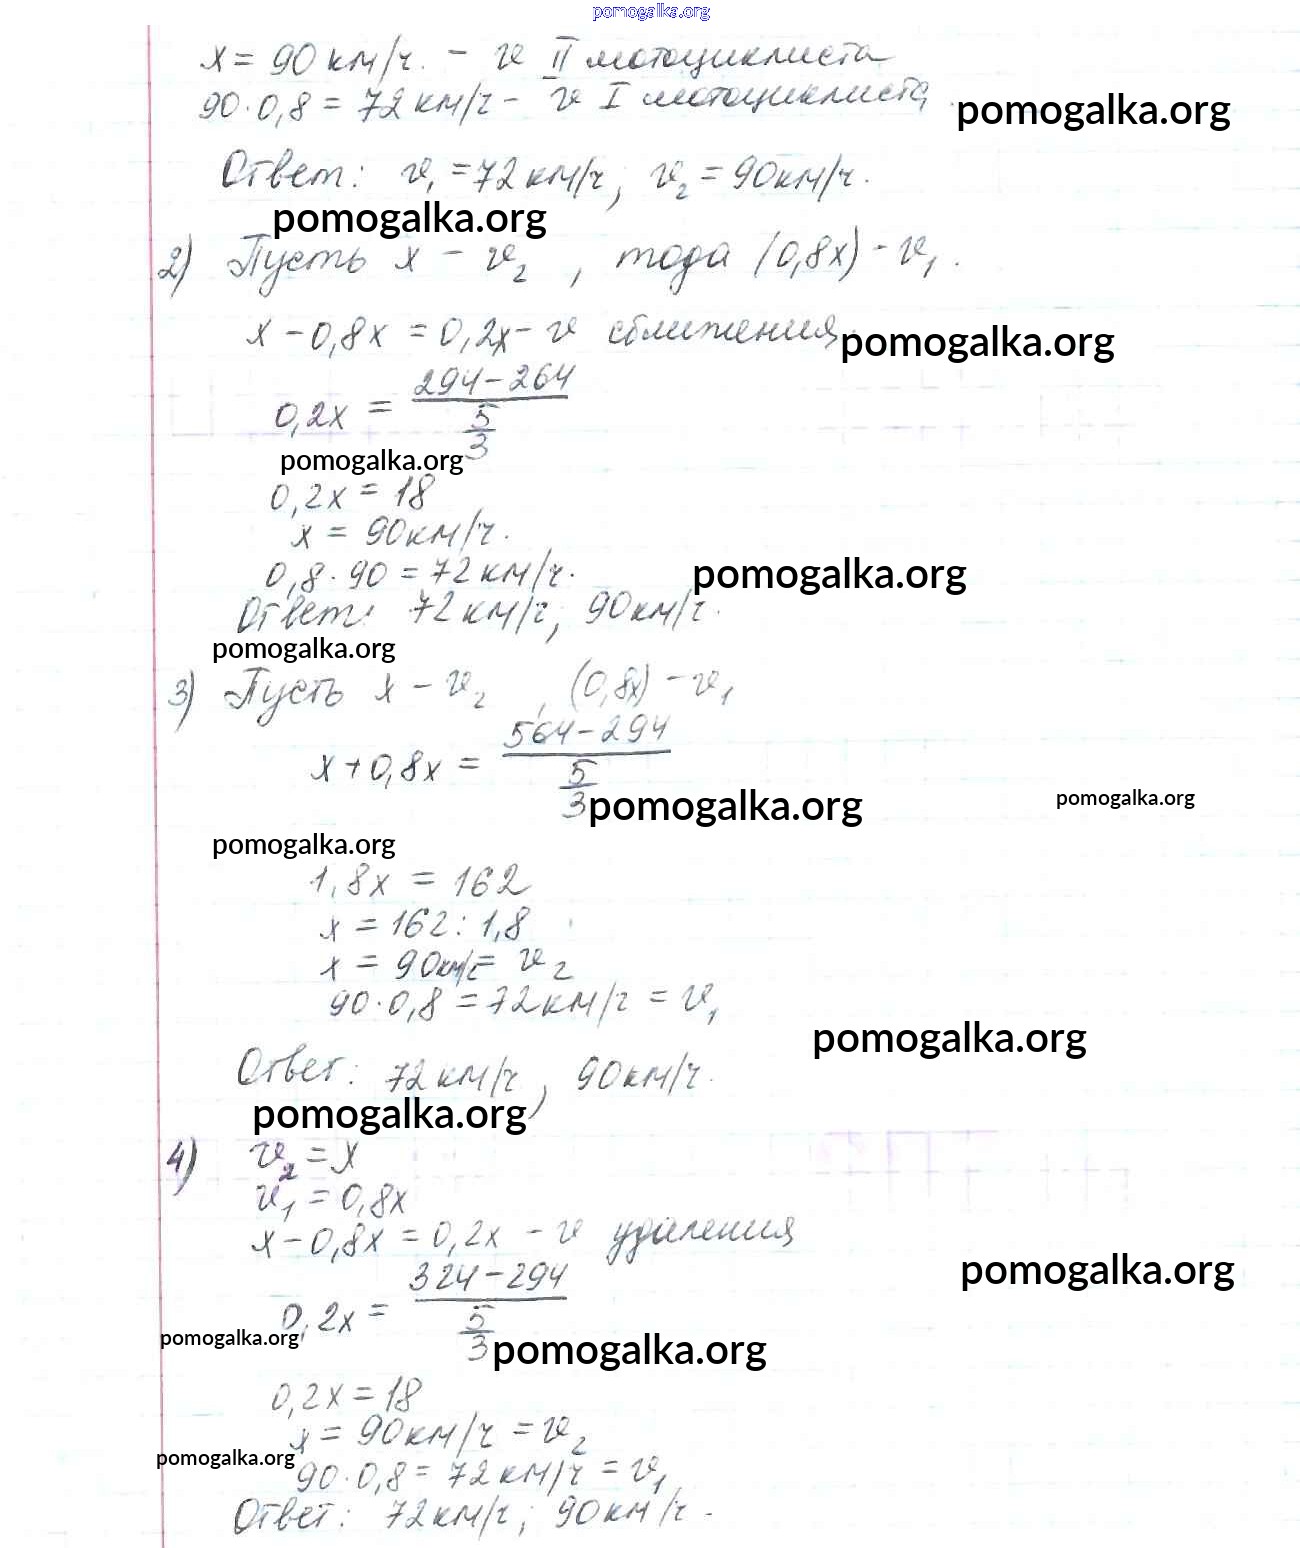 pomogalka.org
x = 90 км/ч. - v II мотоциклиста
90 · 0,8 = 72 км/ч - v I мотоциклиста
pomogalka.org
Ответ: v₁ = 72 км/ч; v₂ = 90 км/ч.
pomogalka.org
2) Пусть x - v₂, тода (0,8x) - v₁.
x - 0,8x = 0,2x - v сближения
pomogalka.org
0,2x = (294 - 264) / (5/3)
pomogalka.org
0,2x = 18
x = 90 км/ч.
0,8 · 90 = 72 км/ч.
pomogalka.org
Ответ: 72 км/ч; 90 км/ч.
pomogalka.org
3) Пусть x - v₂, (0,8x) - v₁
x + 0,8x = (564 - 294) / (5/3)
pomogalka.org
pomogalka.org
pomogalka.org
1,8x = 162
x = 162 : 1,8
x = 90 км/ч = v₂
90 · 0,8 = 72 км/ч = v₁
pomogalka.org
Ответ: 72 км/ч, 90 км/ч.
pomogalka.org
4) v₂ = x
v₁ = 0,8x
x - 0,8x = 0,2x - v удаления
pomogalka.org
0,2x = (324 - 294) / (5/3)
pomogalka.org
pomogalka.org
0,2x = 18
x = 90 км/ч = v₂
pomogalka.org
90 · 0,8 = 72 км/ч = v₁
Ответ: 72 км/ч; 90 км/ч.